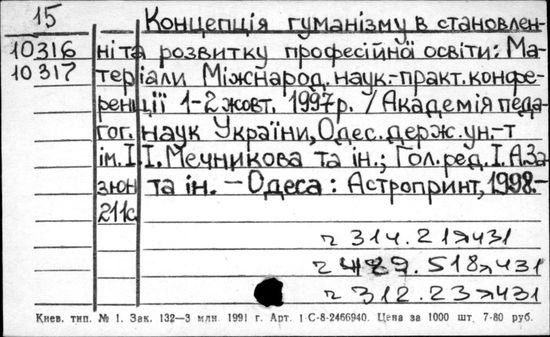 15 Концепція гуманізму в становлен-
10316 ні та розвитку професійної освіти: Ма-
10317 теріали Міжнарод. наук.-практ. конфе-
ренції 1-2 жовт. 1997р. / Академія педа-
гог. наук України, Одес. держ. ун.-т
ім. І. І. Мечникова та ін.; Гол. ред. І. А. За-
зюн та ін. – Одеса : Астропринт, 1998.-
211с
ч 314.21я431
ч 479.518я431
ч 312.23я431
Киев. тип. № 1. Зак. 132—3 млн. 1991 г. Арт. 1-С-8-2466940. Цена за 1000 шт. 7-80 руб.